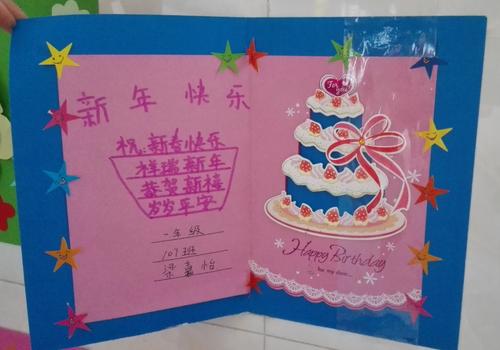 新年快乐
祝:新春快乐
祥瑞新年
恭贺新禧
岁岁平安
一年级
107班
梁嘉怡
For you
Happy Birthday
for my dear...